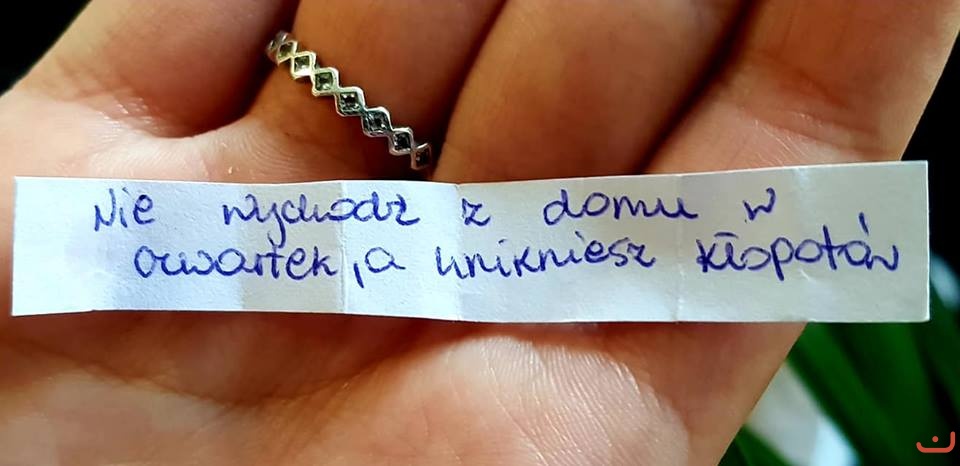 Nie wychodź z domu w
czwartek, a unikniesz kłopotów